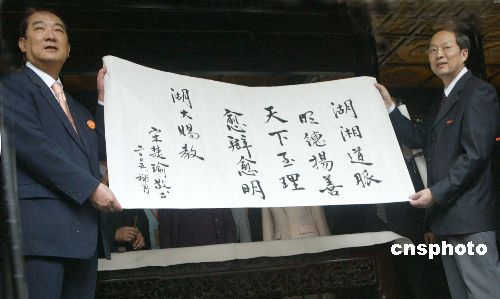 湖湘道脈
明德揚善
天下至理
愈辯愈明
湖大賜教
宋楚瑜敬書
二〇〇五
cnsphoto